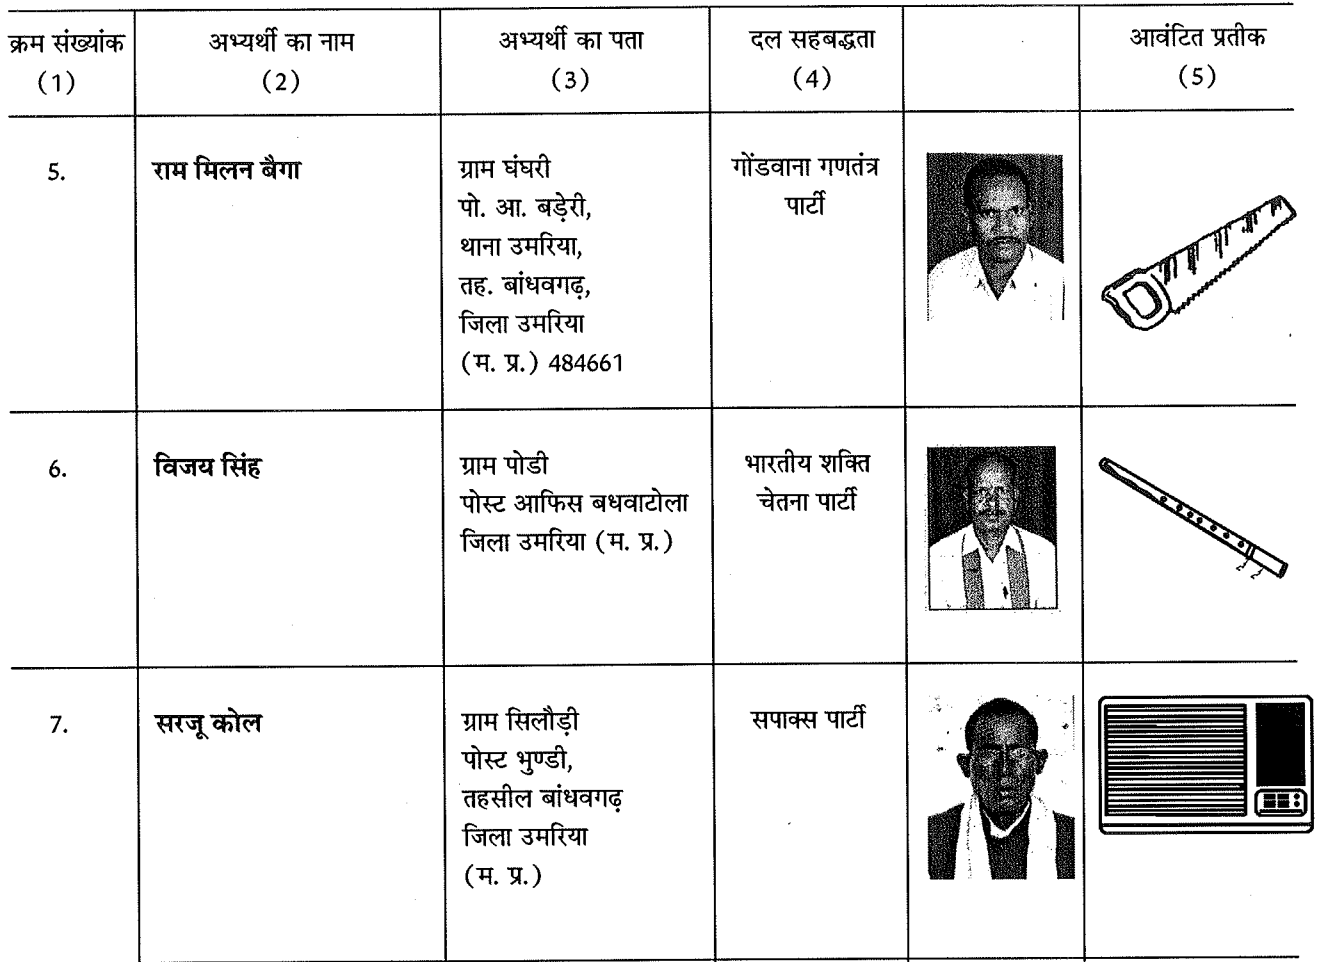 क्रम संख्यांक
(1)
अभ्यर्थी का नाम
(2)
अभ्यर्थी का पता
(3)
दल सहबद्धता
(4)
आवंटित प्रतीक
(5)
5.
राम मिलन बैगा
ग्राम घंघरी
पो. आ. बड़ेरी,
थाना उमरिया,
तह. बांधवगढ़,
जिला उमरिया
(म. प्र.) 484661
गोंडवाना गणतंत्र
पार्टी
6.
विजय सिंह
ग्राम पोडी
पोस्ट आफिस बधवाटोला
जिला उमरिया (म. प्र.)
भारतीय शक्ति
चेतना पार्टी
7.
सरजू कोल
ग्राम सिलौड़ी
पोस्ट भुण्डी,
तहसील बांधवगढ़
जिला उमरिया
(म. प्र.)
सपाक्स पार्टी